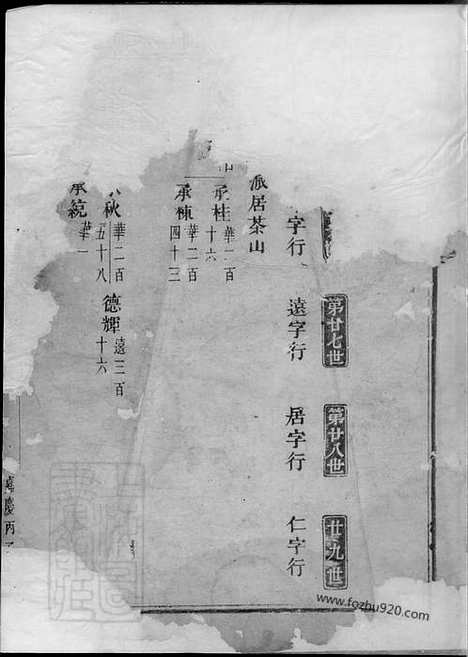 第廿七世
第廿八世
廿九世
字行
遠字行
居字行
仁字行
派居茶山
承桂 華二百十六
承棟 華二百四十三
秋 華二百五十八
德輝 遠三百十六
承統 華一
嘉慶丙子
www.fozhu920.com